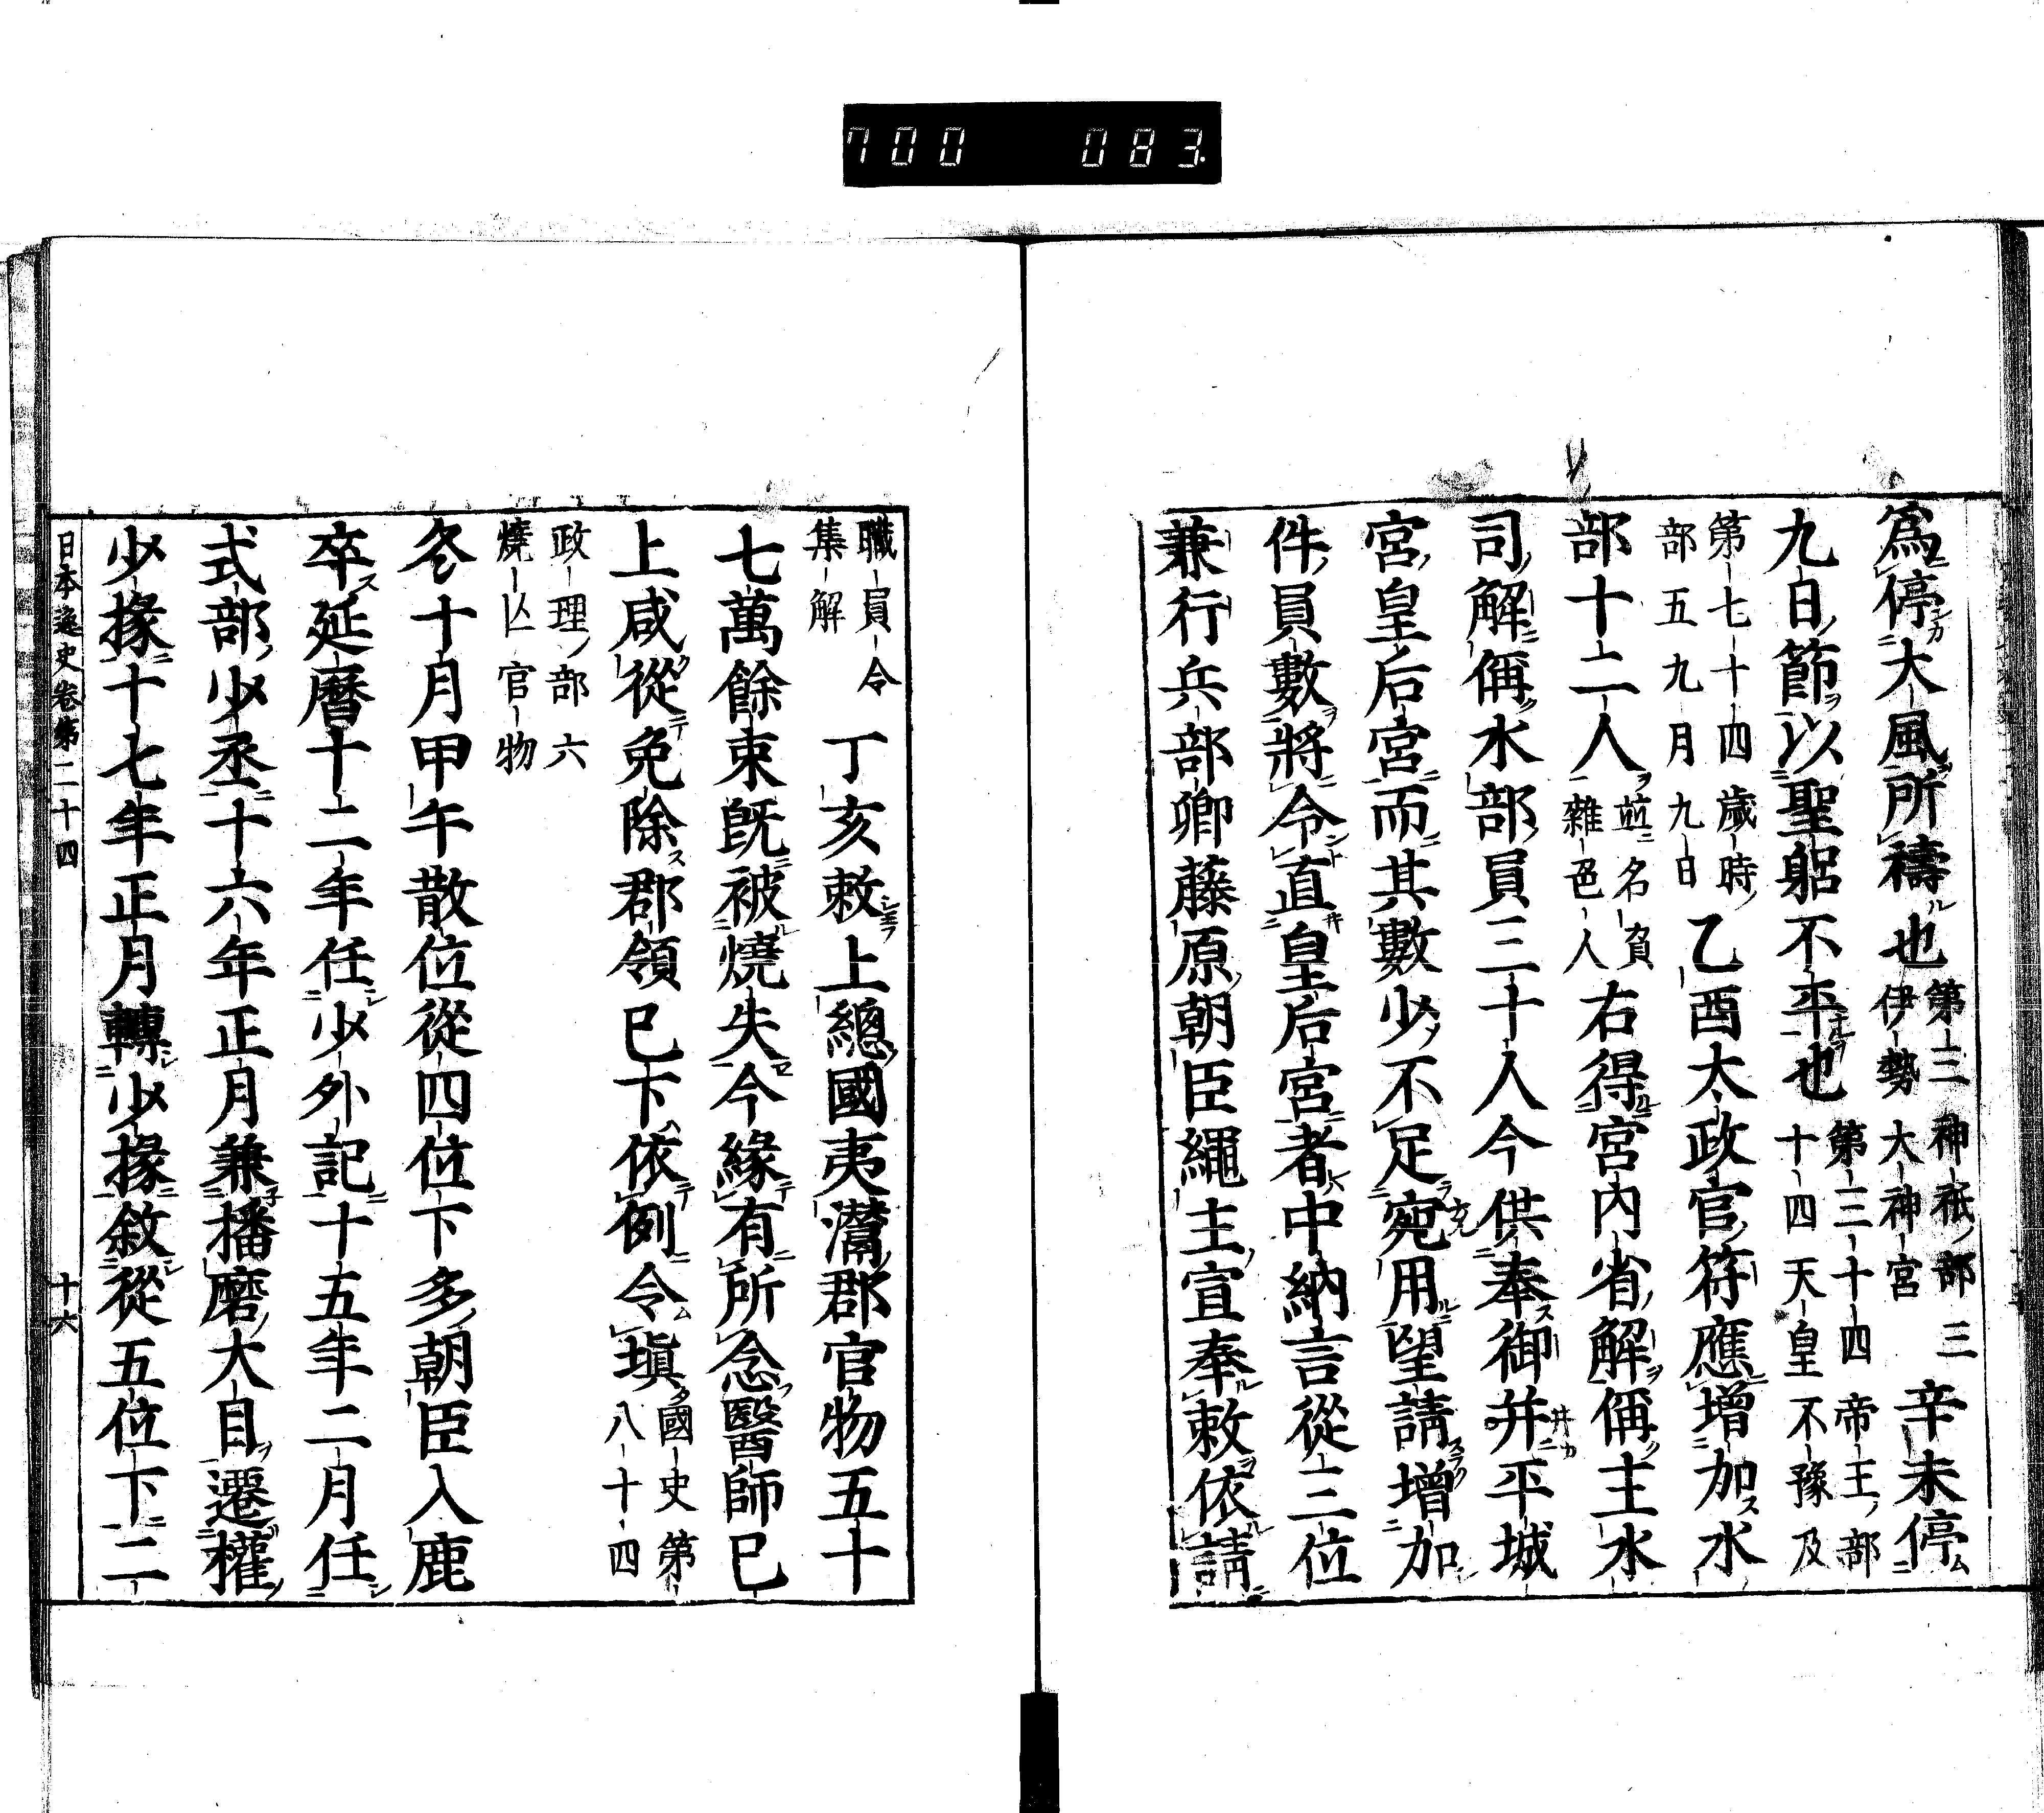 700 083
爲停大風所禱也第三神祇部三伊勢大神宮辛未停
九日節以聖躬不平也第三十四帝王部十四天皇不豫及
第七十四歲時部五九月九日乙酉太政官符應增加水
部十二人並名負雜色人右得宮内省解偁主水
司解偁水部員三十人今供奉御并平城
宮皇后宮而其數少不足宛用望請增加
件員數將令直皇后宮者中納言從三位
兼行兵部卿藤原朝臣繩主宣奉敕依請
職員令集解丁亥敕上總國夷灊郡官物五十
七萬餘束既被燒失今緣有所念醫師已
上咸從免除郡領已下依例令塡國史第八十四
政理部六燒亾官物
冬十月甲午散位從四位下多朝臣入鹿
卒延曆十二年任少外記十五年二月任
式部少丞十六年正月兼播磨大目遷權
少掾十七年正月轉少掾敘從五位下二
日本逸史卷第二十四 十六